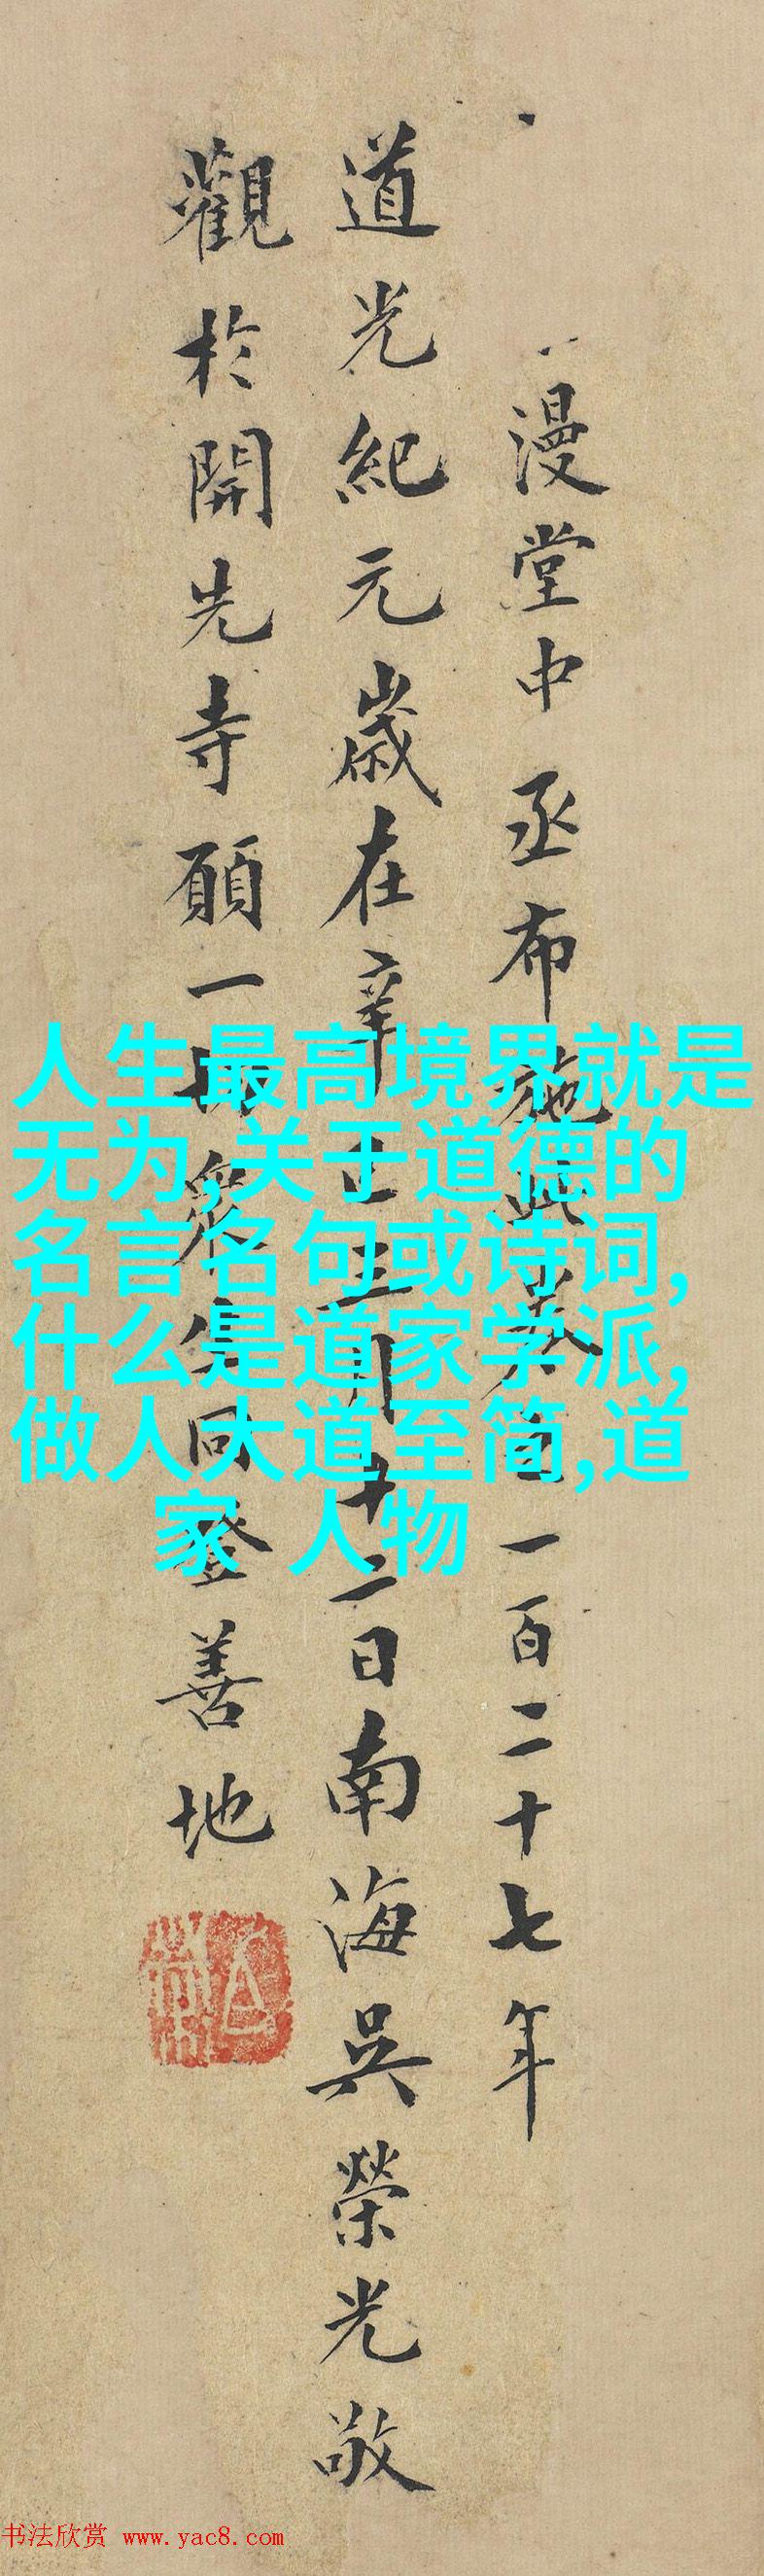 漫堂中丞布施此卷之一百二十七年
道光紀元歲在辛巳三月十二日南海吳榮光敬
觀於開先寺願一切衆生同登善地
人生最高境界就是
无为,关于道德的
名言名句或诗词,
什么是道家学派,
做人大道至简,道
家 人物
书法欣赏 www.yac8.com